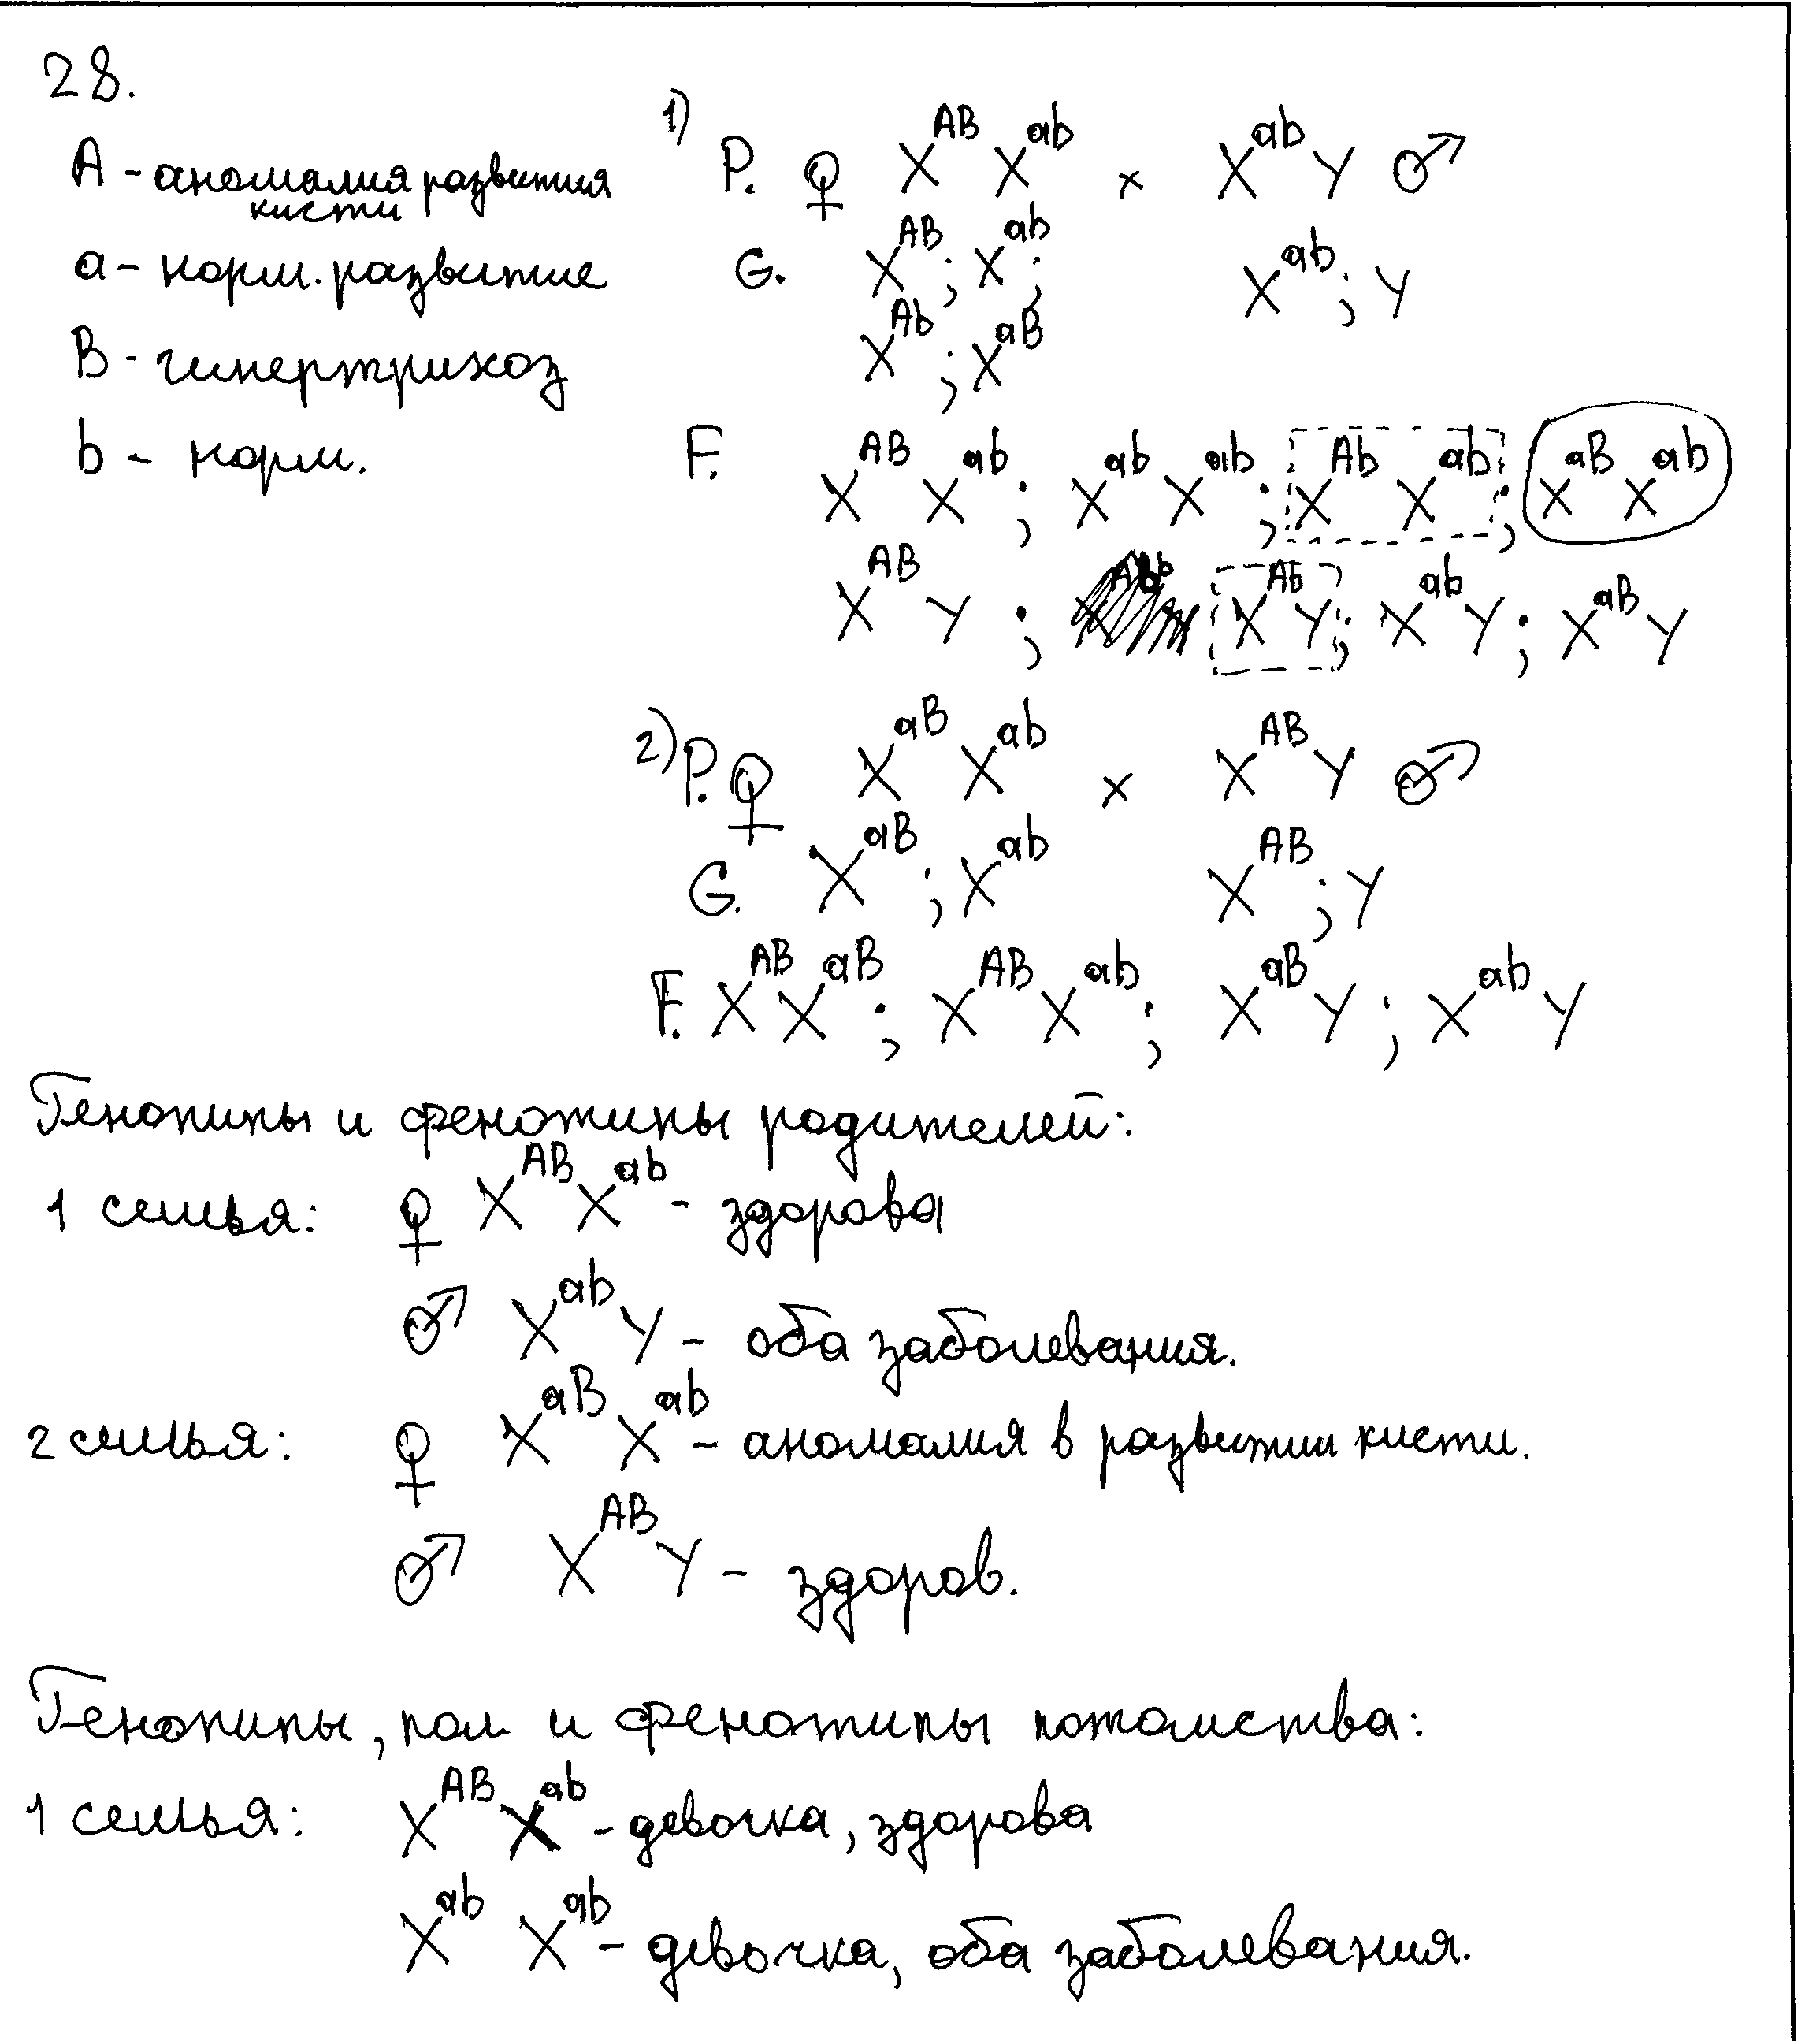 28.
A - аномалия развития
кисти
a - норм. развитие
B - гипертрихоз
b - норм.
1) P. ♀ X^AB X^ab × X^ab Y ♂
G. X^AB ; X^ab ; X^ab ; Y
X^Ab ; X^aB
F. X^AB X^ab ; X^ab X^ab ; X^Ab X^ab ; X^aB X^ab
X^AB Y ; X^Ab Y ; X^ab Y ; X^aB Y
2) P. ♀ X^aB X^ab × X^AB Y ♂
G. X^aB ; X^ab X^AB ; Y
F. X^AB X^aB ; X^AB X^ab ; X^aB Y ; X^ab Y
Генотипы и фенотипы родителей:
1 семья: ♀ X^AB X^ab - здорова
♂ X^ab Y - оба заболевания.
2 семья: ♀ X^aB X^ab - аномалия в развитии кисти.
♂ X^AB Y - здоров.
Генотипы, пол и фенотипы потомства:
1 семья: X^AB X^ab - девочка, здорова
X^ab X^ab - девочка, оба заболевания.